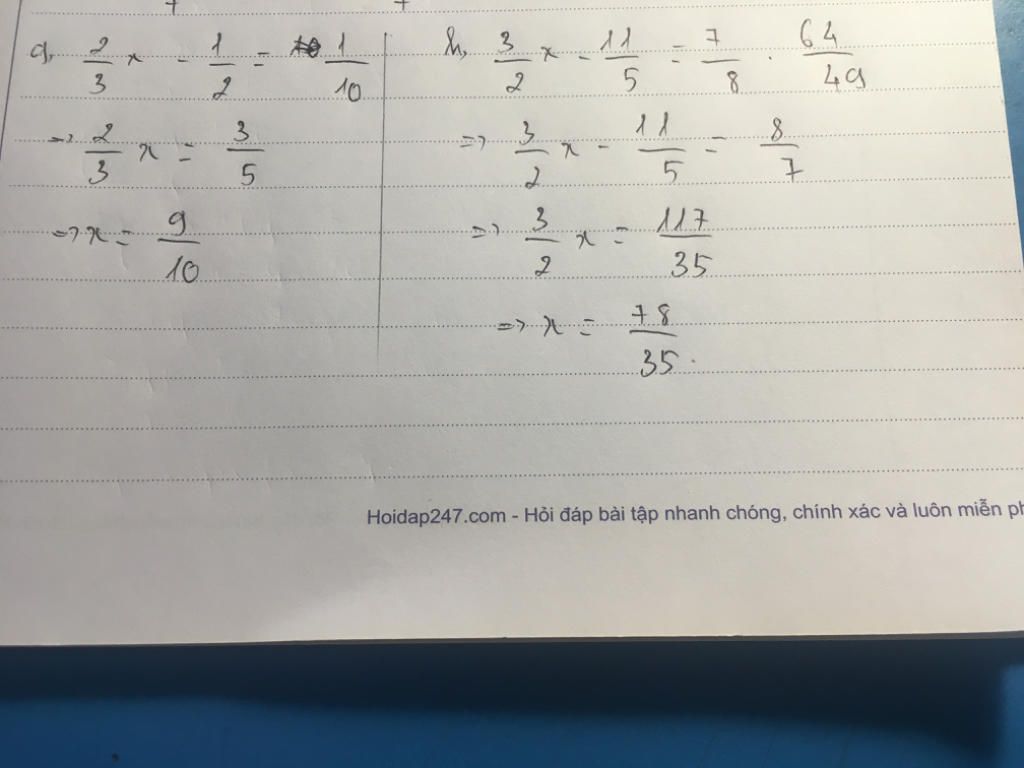 g, 2/3 x - 1/2 = 1/10
=> 2/3 x = 3/5
=> x = 9/10
h, 3/2 x - 11/5 = 7/8 . 64/49
=> 3/2 x - 11/5 = 8/7
=> 3/2 x = 117/35
=> x = 78/35.
Hoidap247.com - Hỏi đáp bài tập nhanh chóng, chính xác và luôn miễn ph